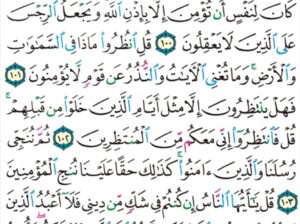 كَانَ لِنَفْسٍ أَن تُؤْمِنَ إِلَّا بِإِذْنِ ٱللَّهِ وَيَجْعَلُ ٱلرِّجْسَ
عَلَى ٱلَّذِينَ لَا يَعْقِلُونَ ١٠٠ قُلِ ٱنظُرُوا۟ مَاذَا فِى ٱلسَّمَـٰوَٰتِ
وَٱلْأَرْضِ ۚ وَمَا تُغْنِى ٱلْـَٔايَـٰتُ وَٱلنُّذُرُ عَن قَوْمٍ لَّا يُؤْمِنُونَ ١٠١
فَهَلْ يَنتَظِرُونَ إِلَّا مِثْلَ أَيَّامِ ٱلَّذِينَ خَلَوْا۟ مِن قَبْلِهِمْ ۚ
قُلْ فَٱنتَظِرُوٓا۟ إِنِّى مَعَكُم مِّنَ ٱلْمُنتَظِرِينَ ١٠٢ ثُمَّ نُنَجِّى
رُسُلَنَا وَٱلَّذِينَ ءَامَنُوا۟ ۚ كَذَٰلِكَ حَقًّا عَلَيْنَا نُنجِ ٱلْمُؤْمِنِينَ
١٠٣ قُلْ يَـٰٓأَيُّهَا ٱلنَّاسُ إِن كُنتُمْ فِى شَكٍّ مِّن دِينِى فَلَآ أَعْبُدُ ٱلَّذِينَ